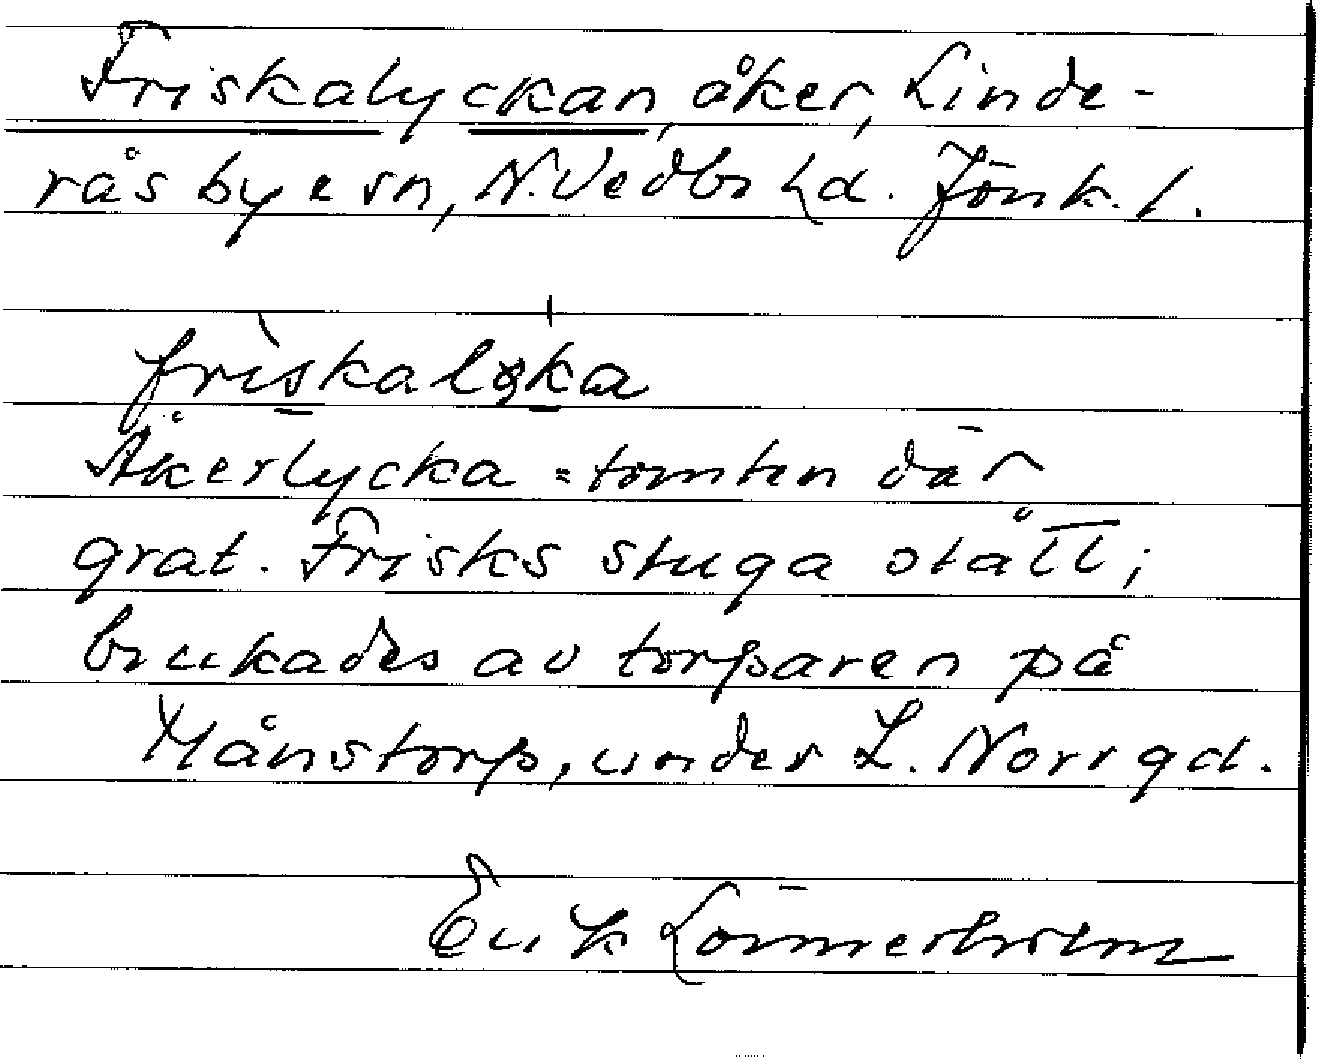 Friskalyckan, åker, Linde-
rås by e sn, N. Vedbo hd. Jönk. l.
friskalyka
Åkerlycka = tomten där
grat. Frisks stuga stått;
brukades av torparen på
Månstorp, under L. Norrgd.
Erik Lönnerholm